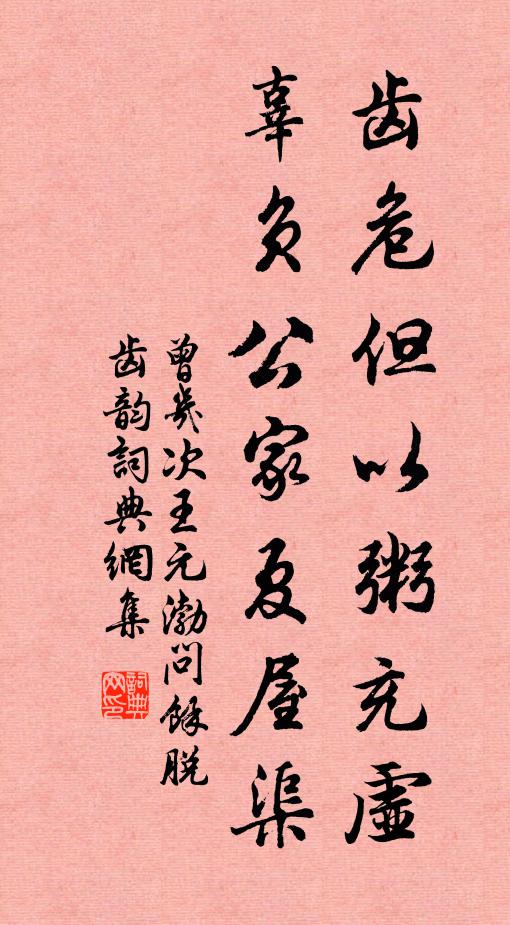 齿危但以粥充虚
辜负公家夏屋渠
曾幾次王元渤问馀脱
齿韵詞典網集
詞典
网印